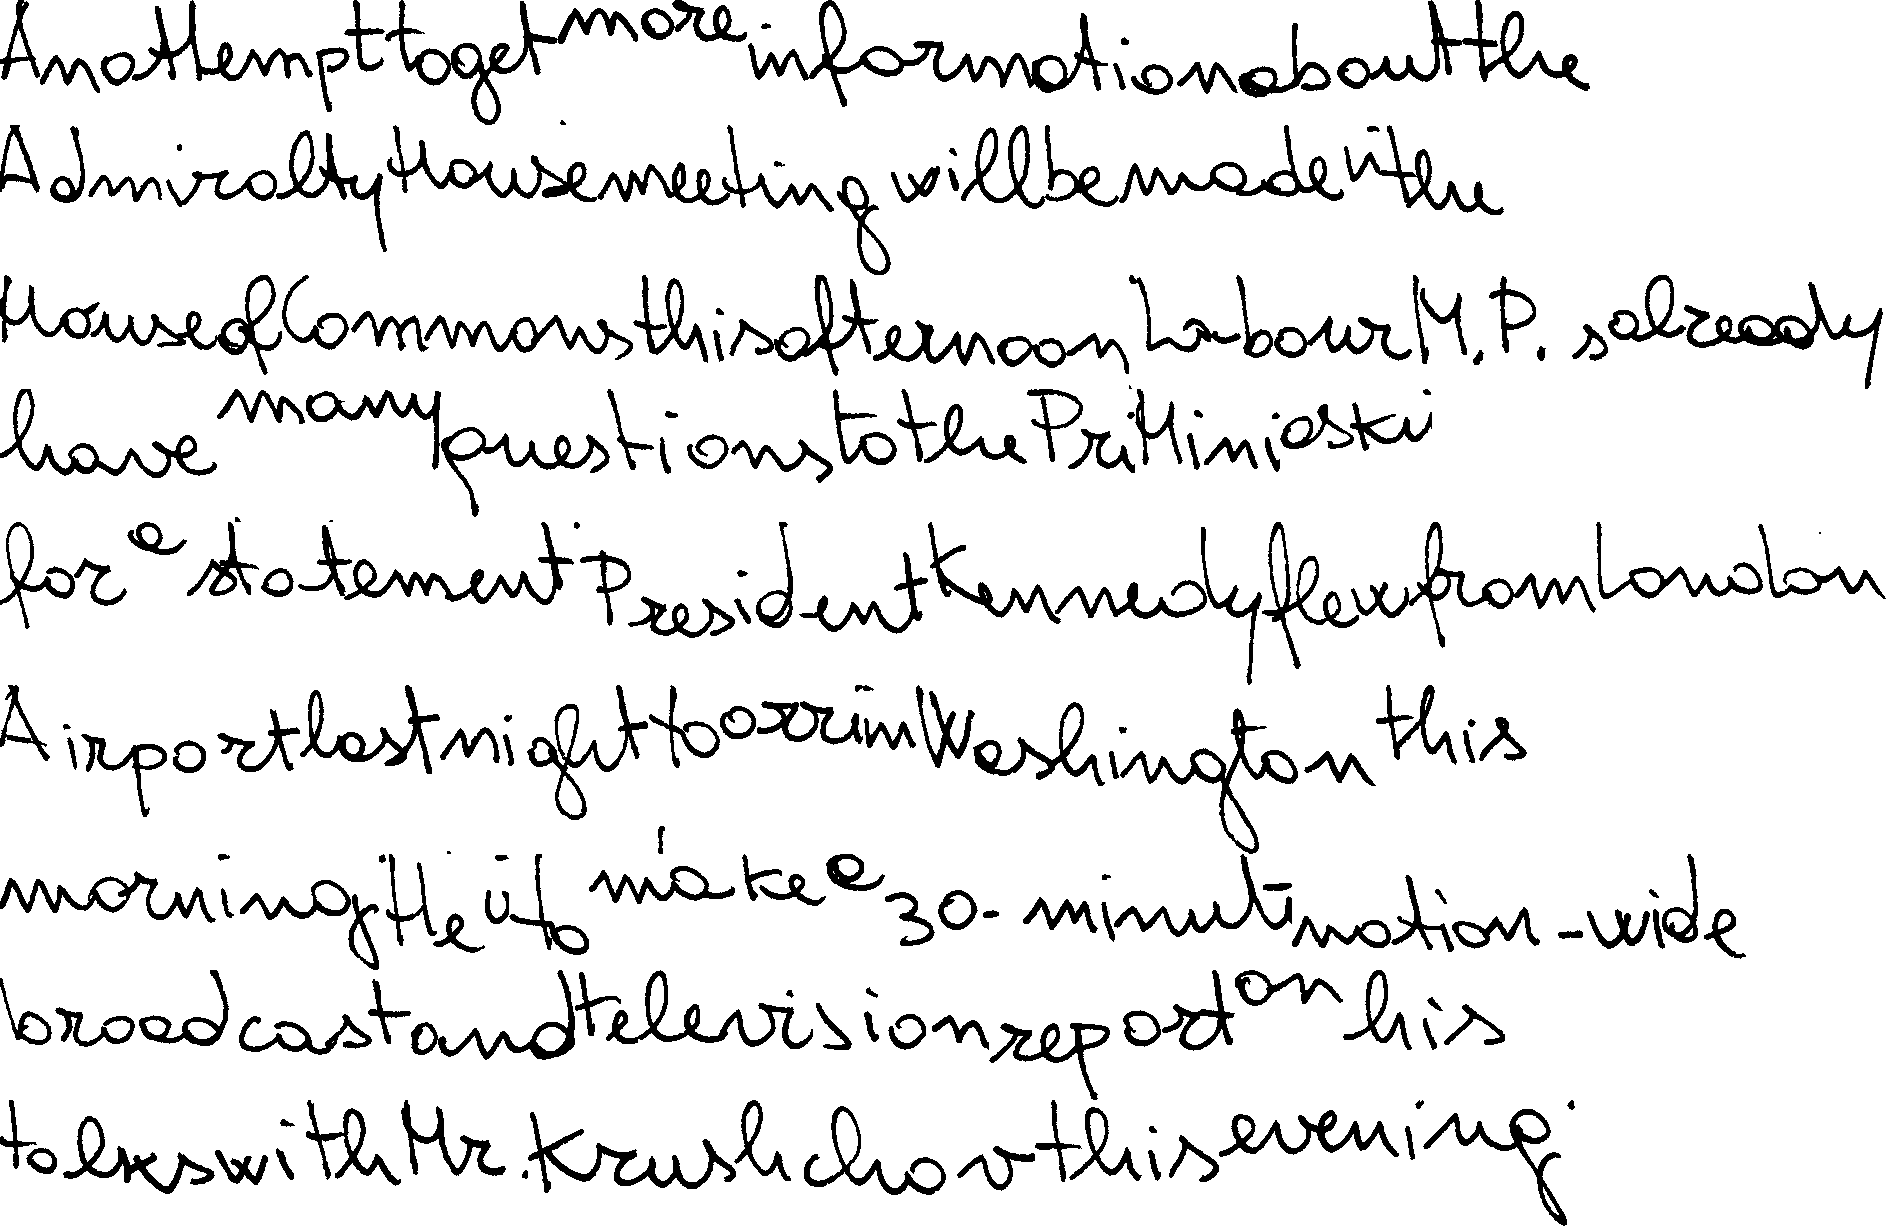 An attempt to get more information about the
Admiralty House meeting will be made in the
House of Commons this afternoon Labour M.P.s already
have many questions to the Pri Mini aski
for a statement President Kennedy flew from London
Airport last night to arri in Washington this
morning He is to make a 30-minute nation-wide
broadcast and television report on his
talks with Mr. Krushchov this evening.